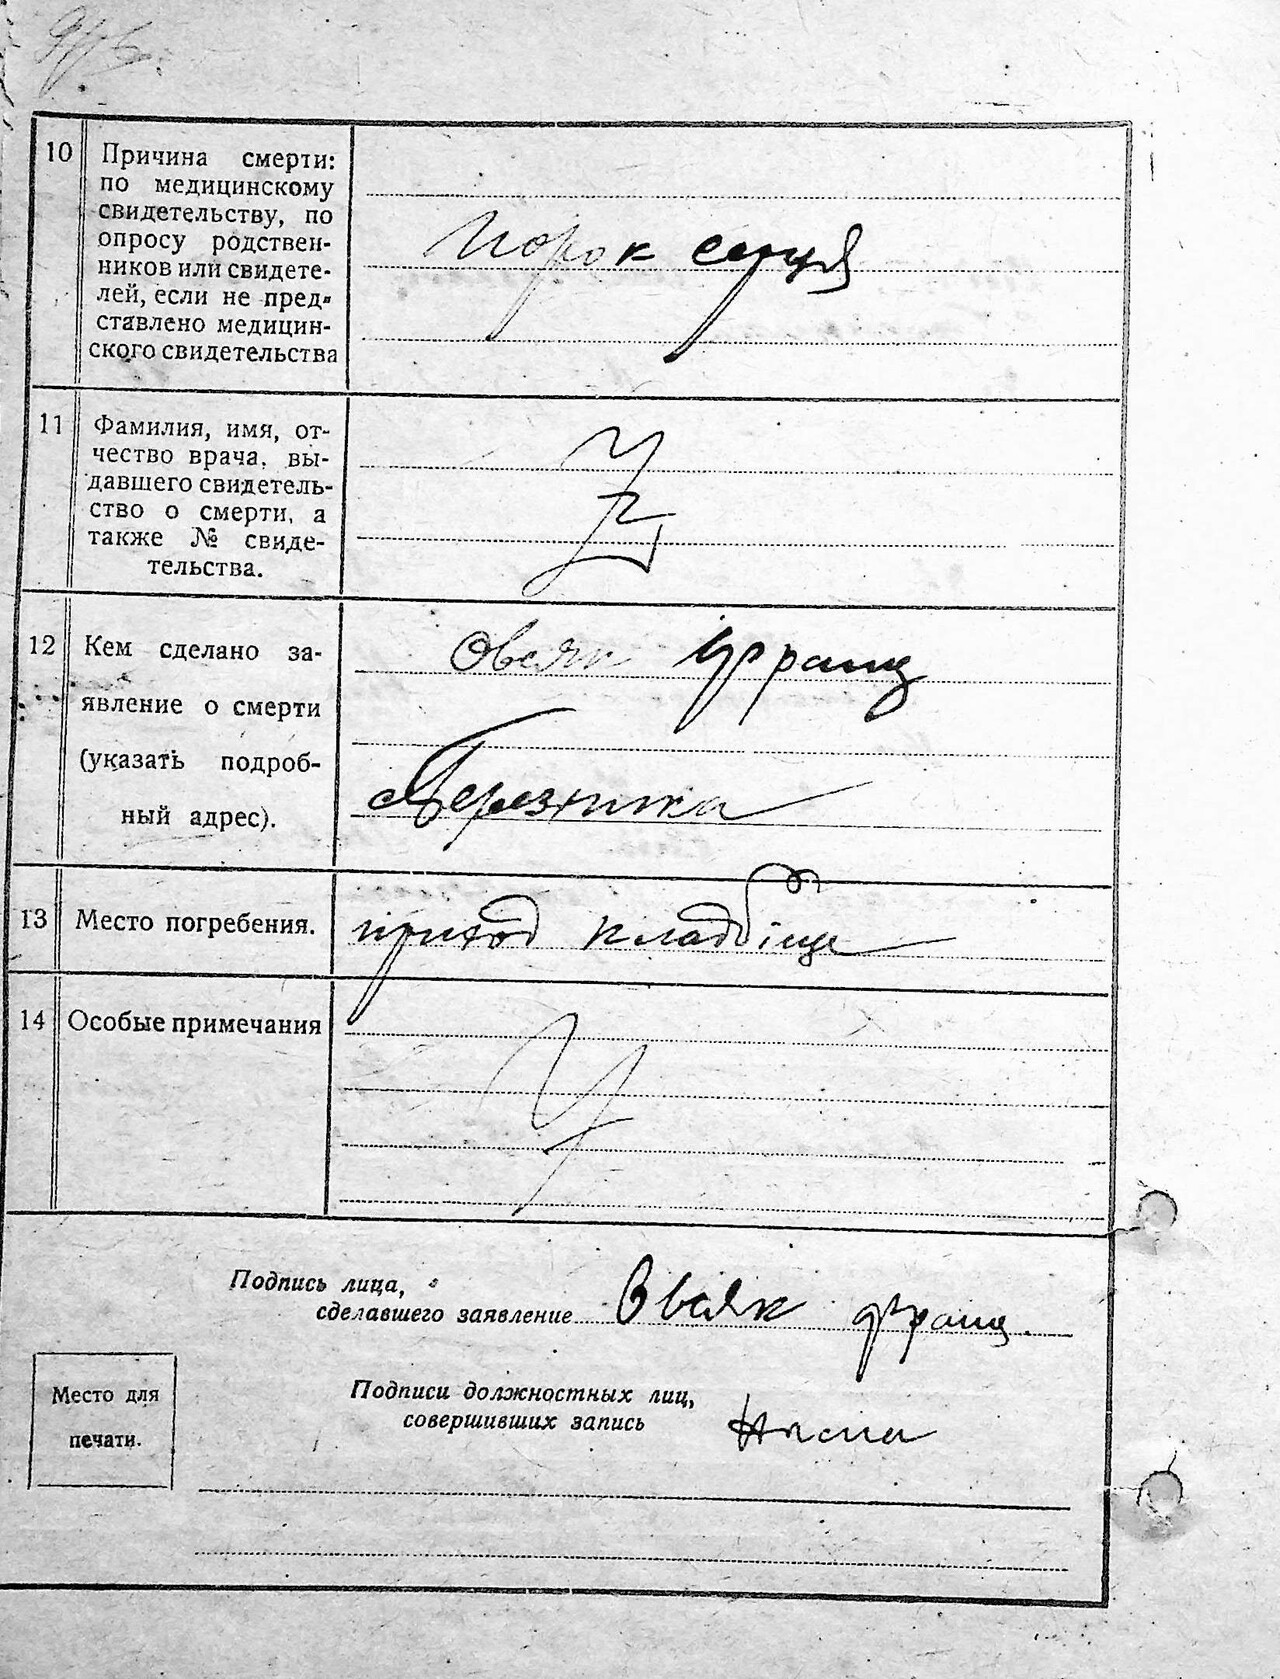 10
Причина смерти:
по медицинскому
свидетельству, по
опросу родствен-
ников или свидете-
лей, если не пред-
ставлено медицин-
ского свидетельства
Порок серця
11
Фамилия, имя, от-
чество врача, вы-
давшего свидетель-
ство о смерти, а
также № свиде-
тельства.
12
Кем сделано за-
явление о смерти
(указать подроб-
ный адрес).
Овсяк Франц
с Березника
13
Место погребения.
приход кладбіще
14
Особые примечания
Подпись лица,
сделавшего заявление Овсяк Франц.
Место для
печати.
Подписи должностных лиц,
совершивших запись